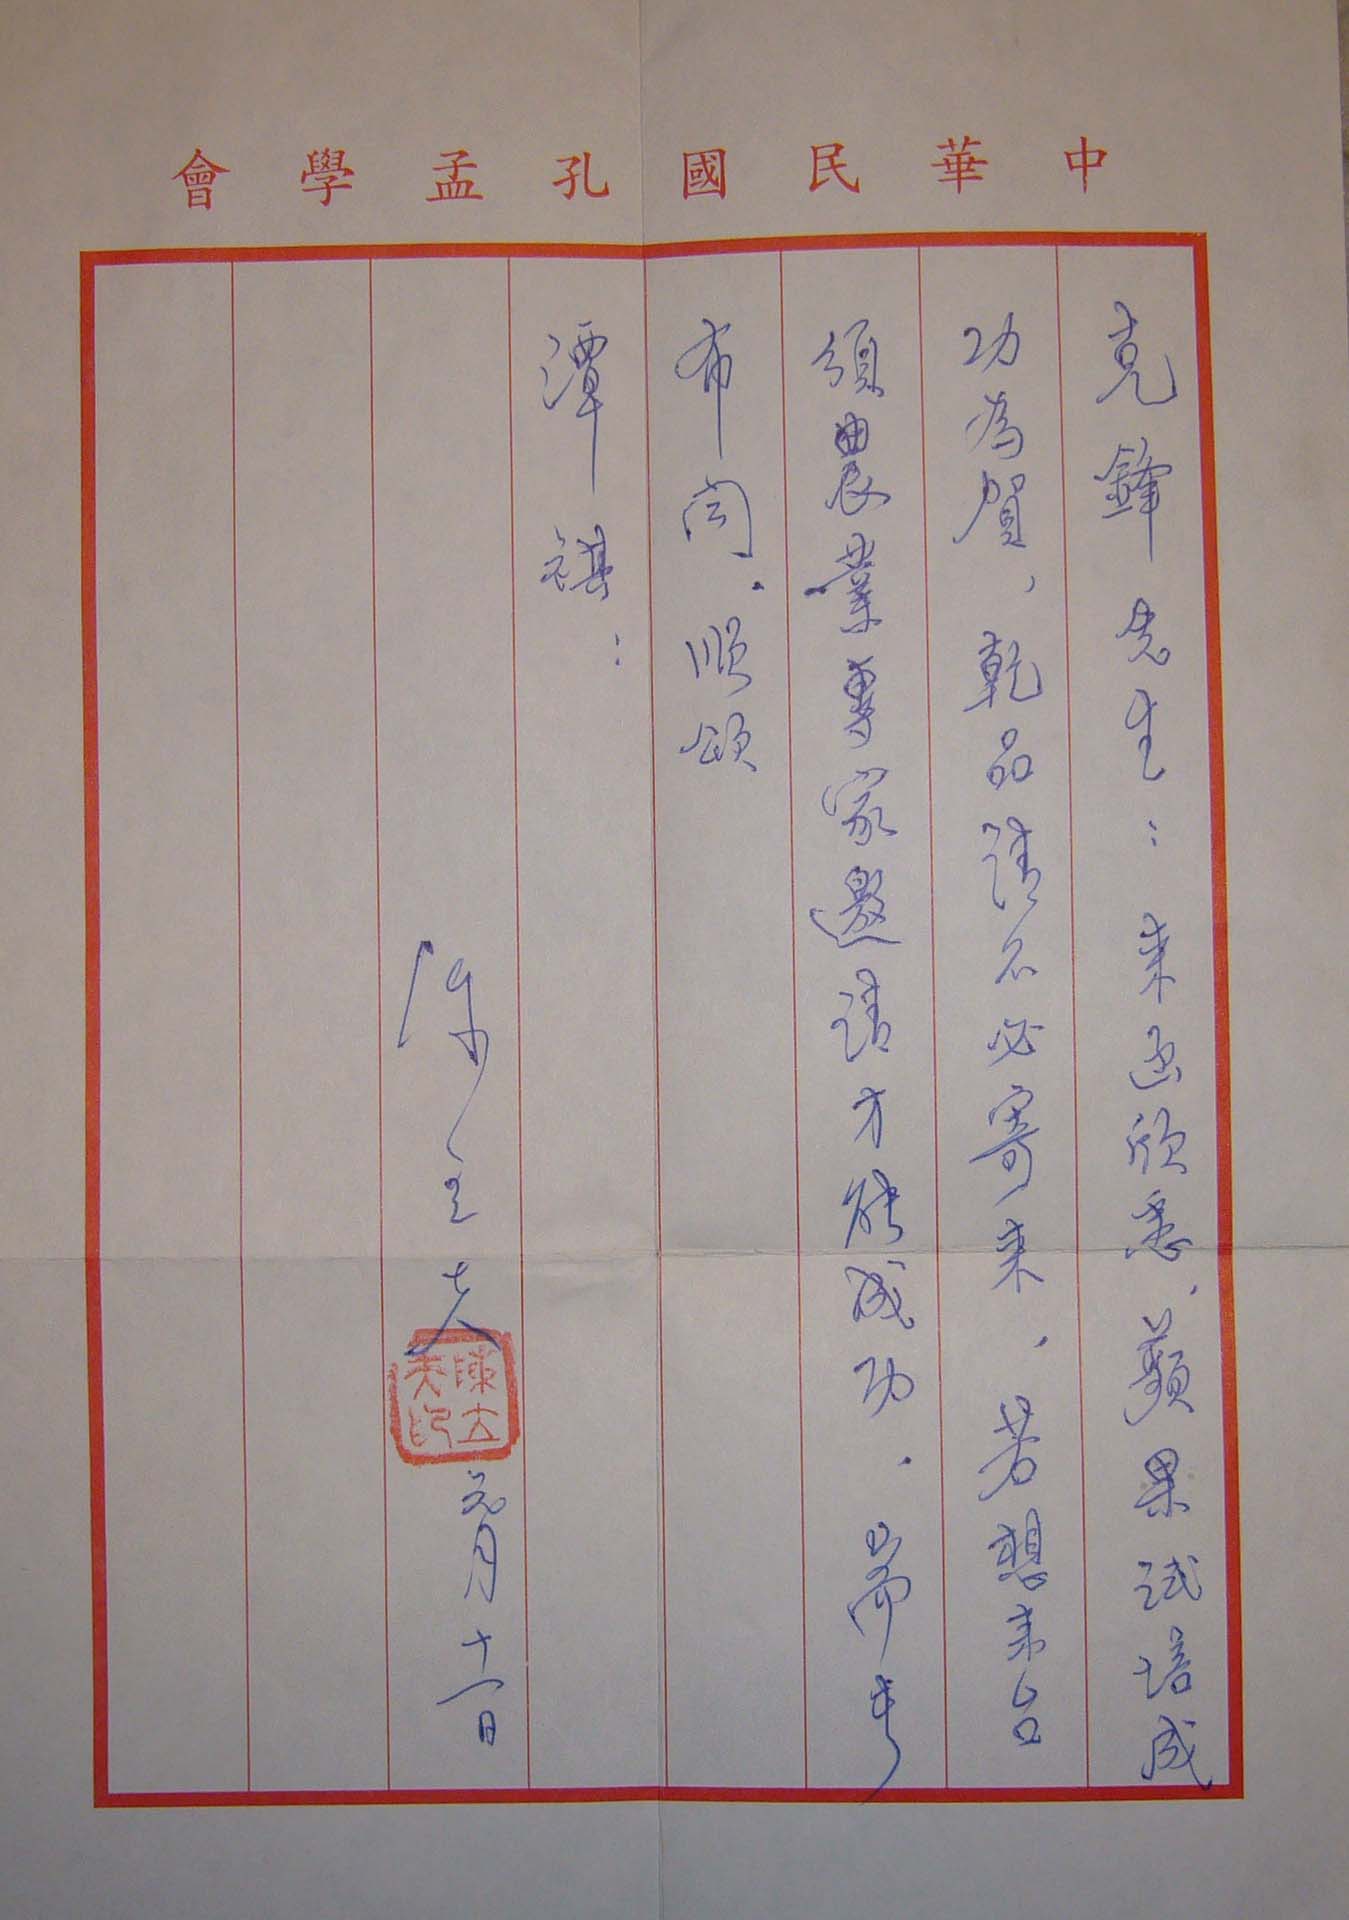 中華民國孔孟學會
克鋒先生：來函欣悉、蘋果試培成
功為賀、乾品請不必寄來、若想來台
須農業專家邀請才能成功．耑
布 ．順頌
潭祺：
陳立夫
陳立夫印
元月十一日